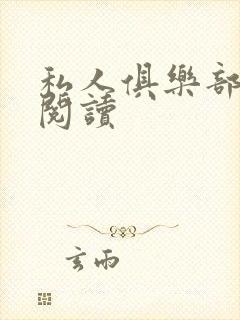 私人俱樂部
閱讀
玄雨